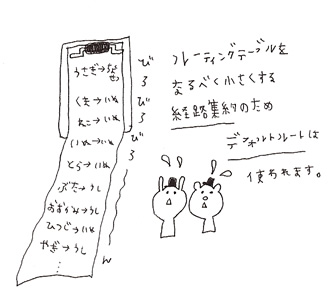 うさぎ→
くま→いぬ
ねこ→いぬ
いぬ→いぬ
とら→いぬ
ぶた→うし
おおかみ→うし
ひつじ→いぬ
やぎ→うし
びろびろびろ〜ん
ルーティングテーブルを
なるべく小さくする
経路集約のため
デフォルトルートは
使われます。